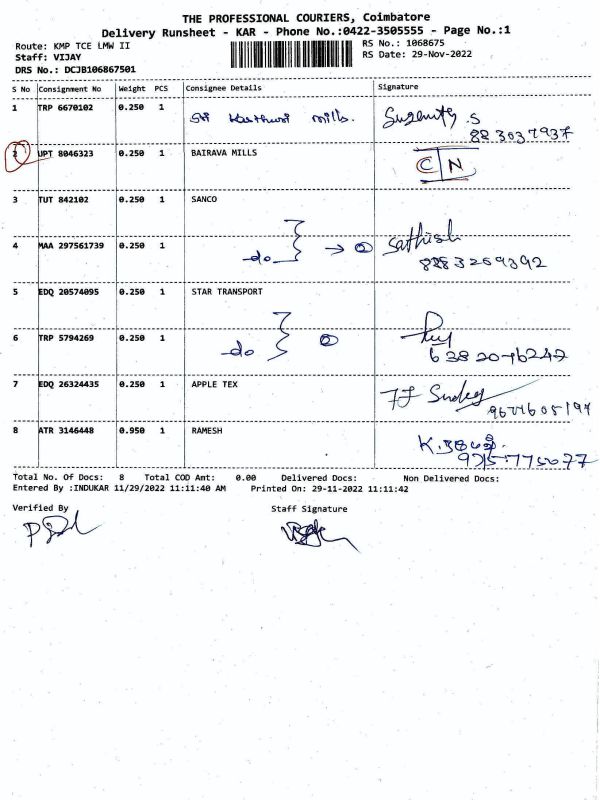 THE PROFESSIONAL COURIERS, Coimbatore
Delivery Runsheet - KAR - Phone No.:0422-3505555 - Page No.:1
Route: KMP TCE LMW II
RS No.: 1068675
Staff: VIJAY
RS Date: 29-Nov-2022
DRS No.: DCJB106867501
S No Consignment No Weight PCS Consignee Details Signature
1 TRP 6670102 0.250 1 Sri Kasthuri Mills.
2 UPT 8046323 0.250 1 BAIRAVA MILLS C/N
3 TUT 842102 0.250 1 SANCO
4 MAA 297561739 0.250 1 do } → 2 Sathish
8883269392
5 EDQ 20574095 0.250 1 STAR TRANSPORT
6 TRP 5794269 0.250 1 do } 2
7 EDQ 26324435 0.250 1 APPLE TEX
8 ATR 3146448 0.950 1 RAMESH
Total No. Of Docs: 8 Total COD Amt: 0.00 Delivered Docs: Non Delivered Docs:
Entered By :INDUKAR 11/29/2022 11:11:40 AM Printed On: 29-11-2022 11:11:42
Verified By Staff Signature